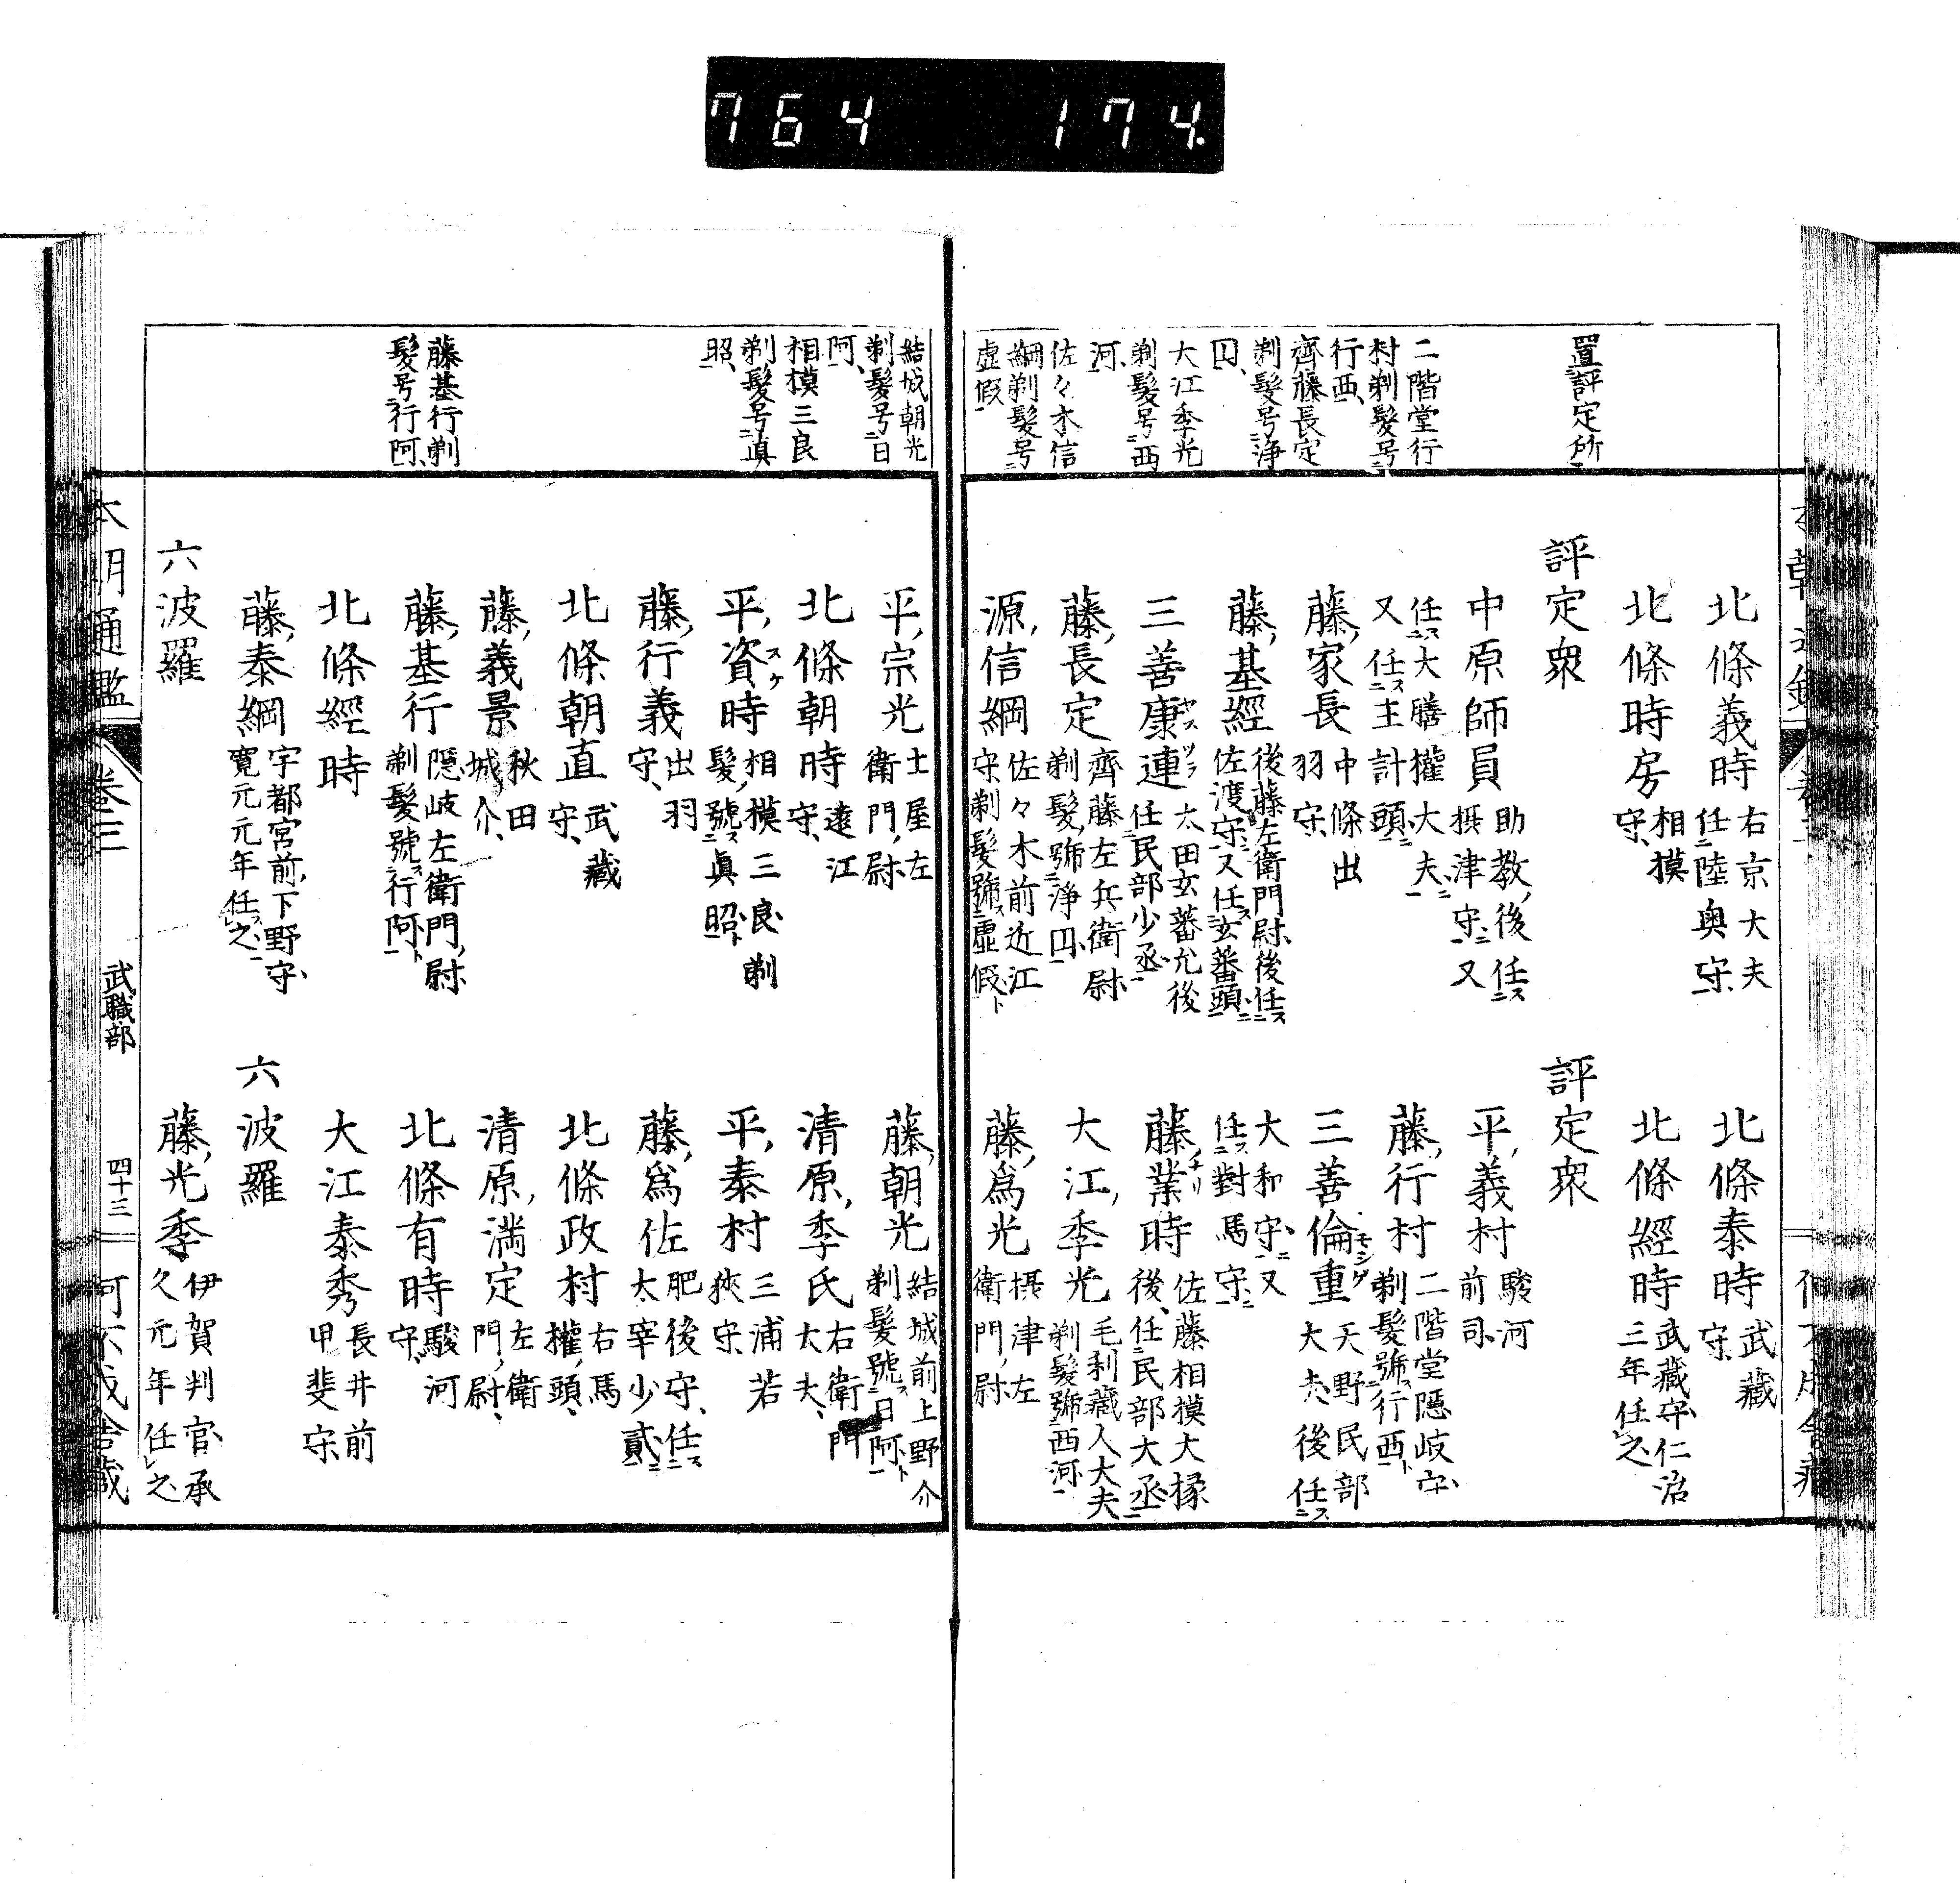 764 174.
置評定所
二階堂行
村剃髮号
行西、
齊藤長定
剃髮号浄
囚、
大江季光
剃髮号西
河、
佐々木信
綱剃髮号
虚假
北條義時 右京大夫任陸奥守、
北條泰時 武藏守、
北條時房 相摸守、
北條經時 武藏守、仁治三年任之、
評定衆
評定衆
中原師員 助教、後任ス攝津守ニ又
平、義村 駿河前司
任ス大膳權大夫ニ又任ス主計頭ニ
藤、行村 二階堂隱岐守、剃髮號ス行西ト
藤、家長 中條出羽守、
三善倫重 モシゲ 天野民部大夫、後任ス
藤、基經 後藤左衛門尉、後任ス佐渡守ニ又任ス玄蕃頭ニ
大和守ニ又任ス對馬守ニ
三善康連 ヤスツラ 太田玄蕃允後任民部少丞
藤、業時 ナリ 佐藤相摸大掾後、任民部大丞
藤、長定 齊藤左兵衛尉、剃髮、號浄囚、
大江、季光 毛利藏人大夫剃髮號西河
源、信綱 佐々木前近江守剃髮號ス虚假ト
藤、爲光 摂津左衛門、尉
結城朝光
剃髮号日
阿、
相摸三良
剃髮号眞
照、
藤基行剃
髮号行阿、
平、宗光 土屋左衛門、尉
藤、朝光 結城前上野介剃髮號ス日阿ト
北條朝時 遠江守、
清原、季氏 右衛門太夫、
平、資時 スケ 相摸三良剃髮、號ス眞昭ト
平、泰村 三浦若狹守
藤、行義 出羽守、
藤、爲佐 肥後守、任ス太宰少貳ニ
北條朝直 武藏守、
北條政村 右馬權、頭、
藤、義景 秋田城介、
清原、滿定 左衛門、尉、
藤、基行 隱岐左衛門、尉剃髮號ス行阿ト
北條有時 駿河守、
北條經時
大江泰秀 長井前甲斐守
藤、泰綱 宇都宮前、下野守、寛元元年任ス之ニ
六波羅
六波羅
藤、光季 伊賀判官、承久元年任之、
本朝通鑑 卷三 武職部 四十三